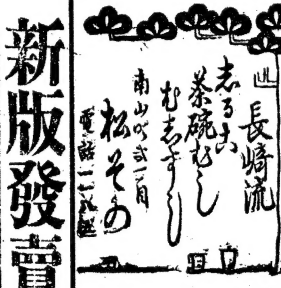 長崎流
志るこ
茶碗むし
むしずし
南山町弐丁目
松その
電話一一
新版發賣